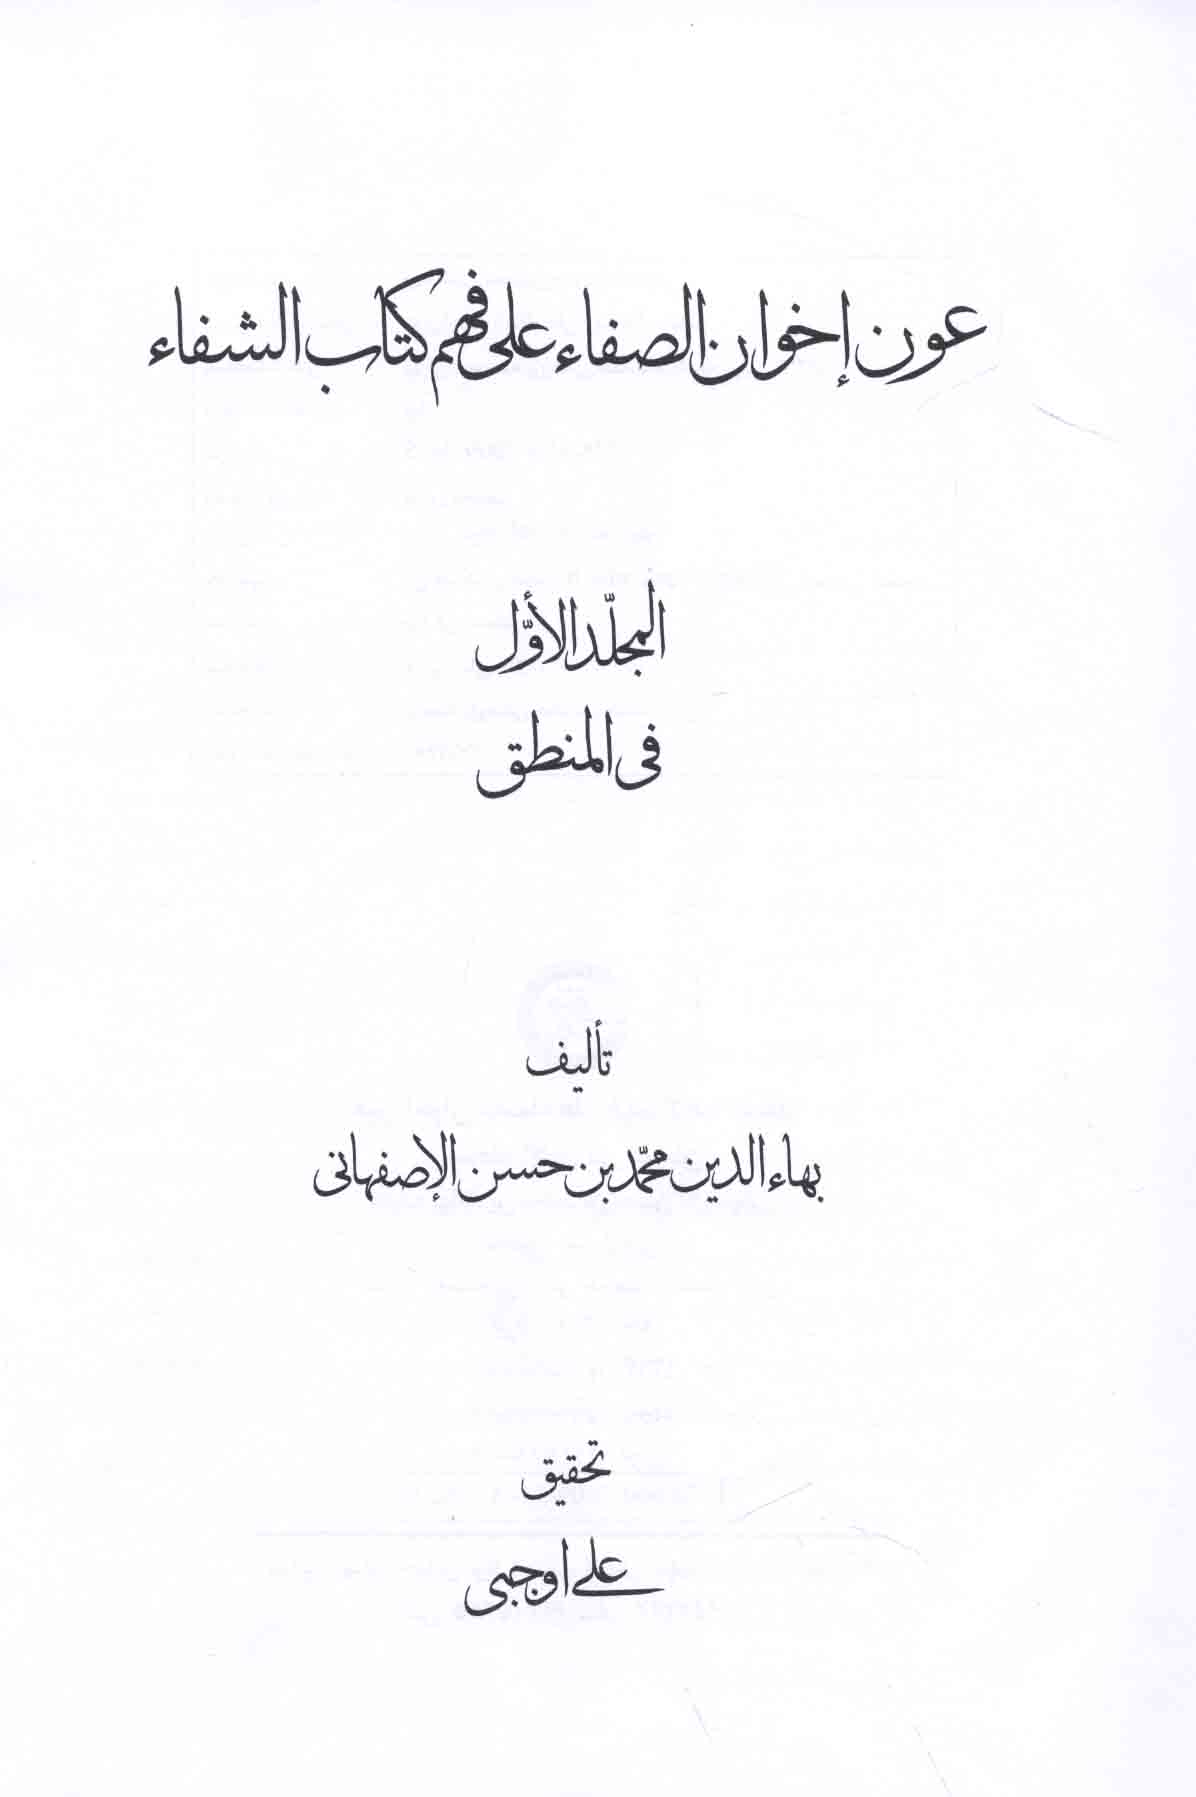 عون إخوان الصفاء على فهم كتاب الشفاء
المجلّد الأوّل
فى المنطق
تأليف
بهاء الدين محمّد بن حسن الإصفهانى
تحقيق
على اوجبى